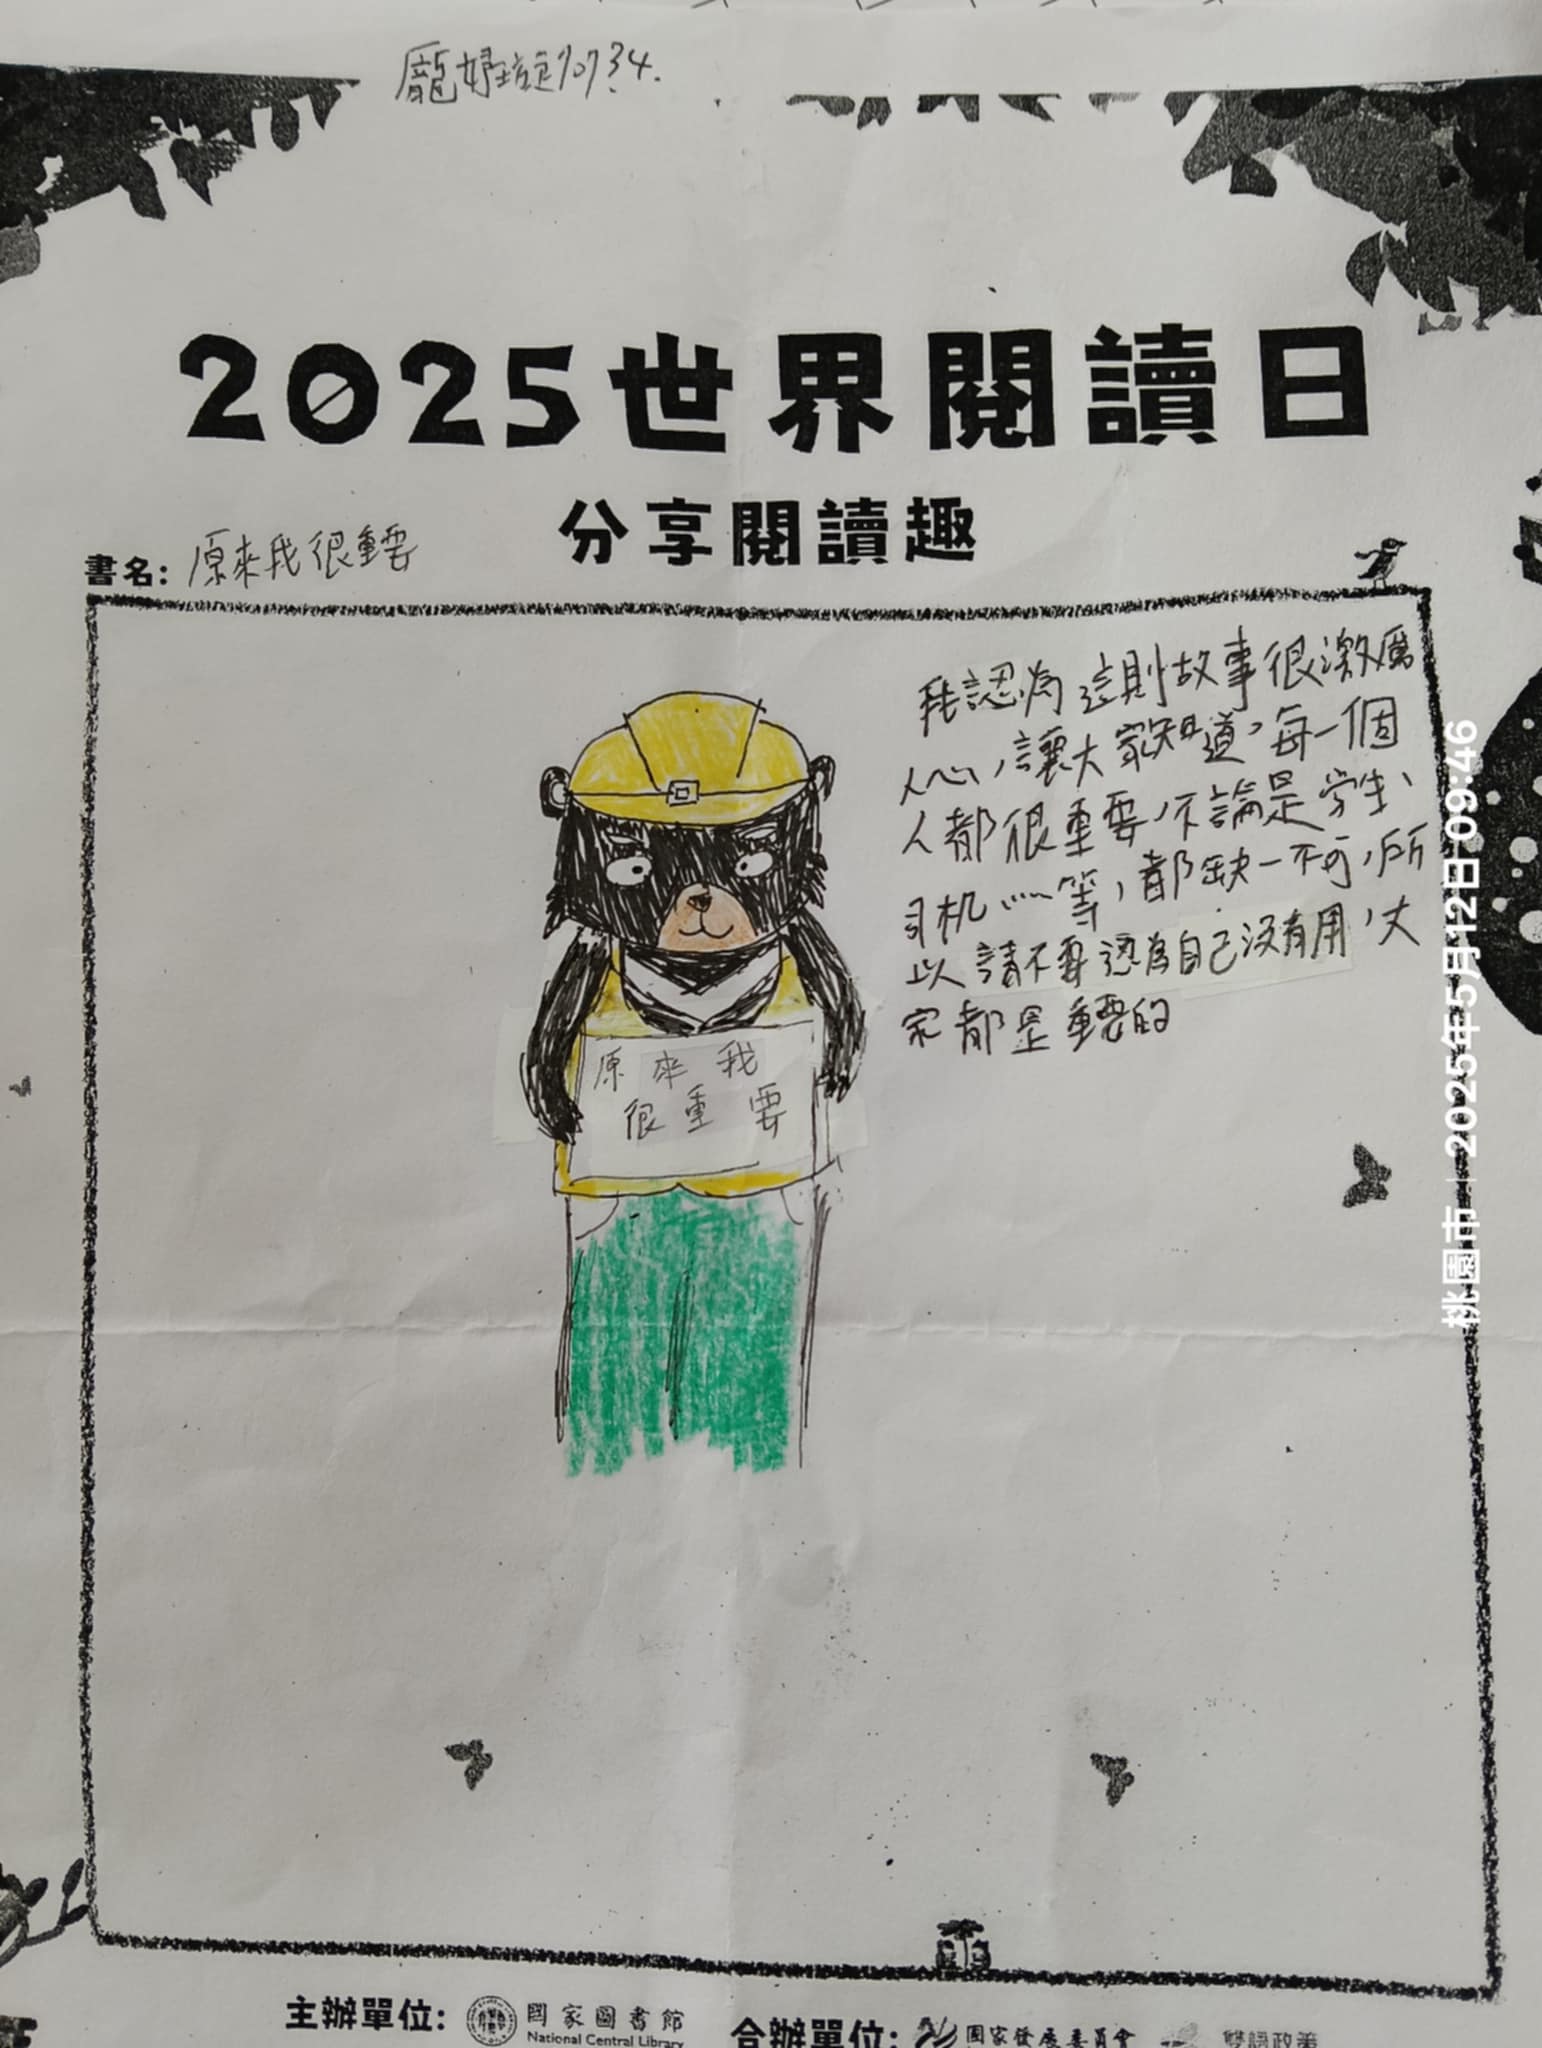 龐婦琁 70734.
2025世界閱讀日
分享閱讀趣
書名: 原來我很重要
我認為這則故事很激厲
人心，讓大家知道，每一個
人都很重要，不論是學生、
司机……等，都缺一不可，所
以請不要認為自己沒有用，大
家都是重要的
原來我
很重要
桃園市 | 2025年5月12日 09:46
主辦單位: 國家圖書館
National Central Library
合辦單位: 國家發展委員會 雙語政策